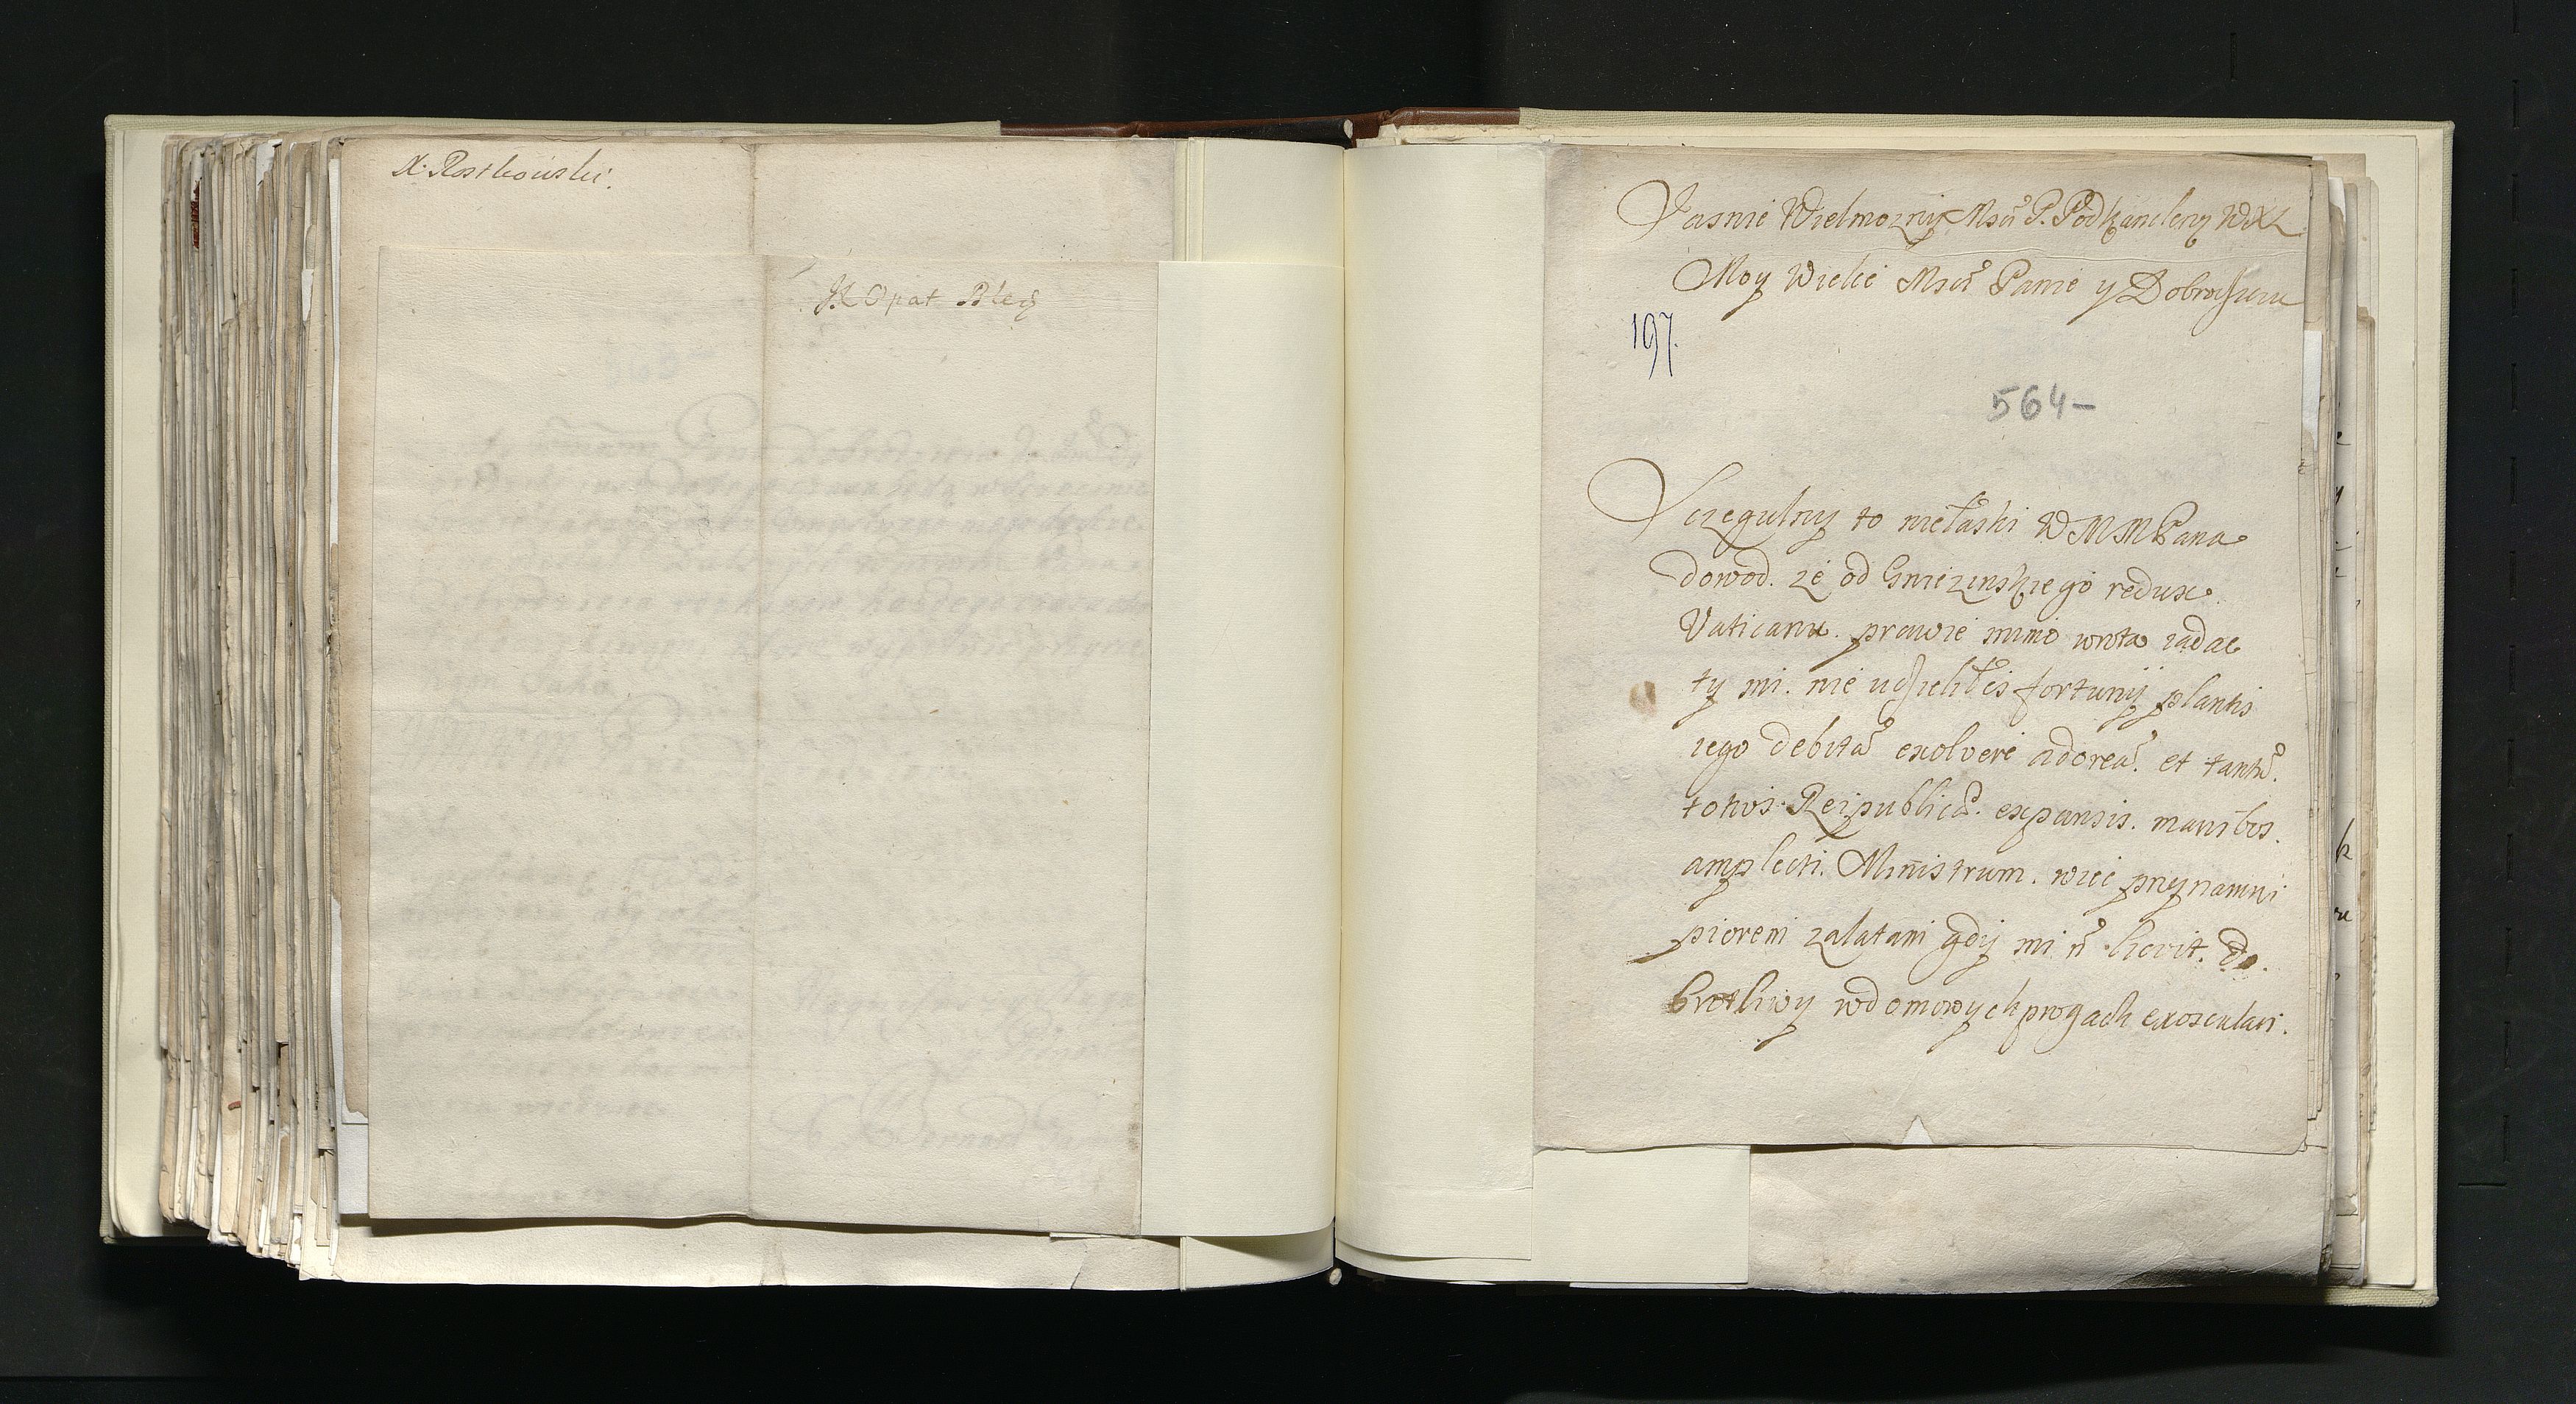 X. Rostkowski.
JX Opat Bled
Jasnie Wielmozny Mscu P. Podkanclerzy WXL
Moy Wielce Mscu Panie y Dobrodzieiu
197.
564-
Sczegulny to niełaski WMMPana
dowod. że od Gnieznskiego redux
Vaticanu. prawie mimo wrota iadac
ty mi. nie udzieliłes fortuny plantis
iego debitã exolvere adoreã. et tantũ.
totius Reipublicæ. expansis. manibus.
amplecti. Ministrum. wiec przynamni
piorem zalatam gdy mi ñ licvit. do.
brotliwy w domowych progach exosculari.